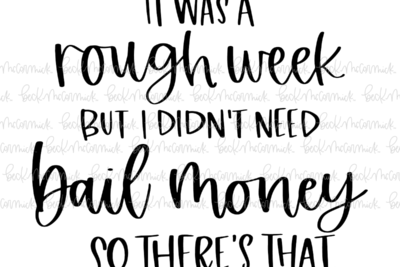 IT WAS A
rough week
BUT I DIDN'T NEED
bail money
SO THERE'S THAT